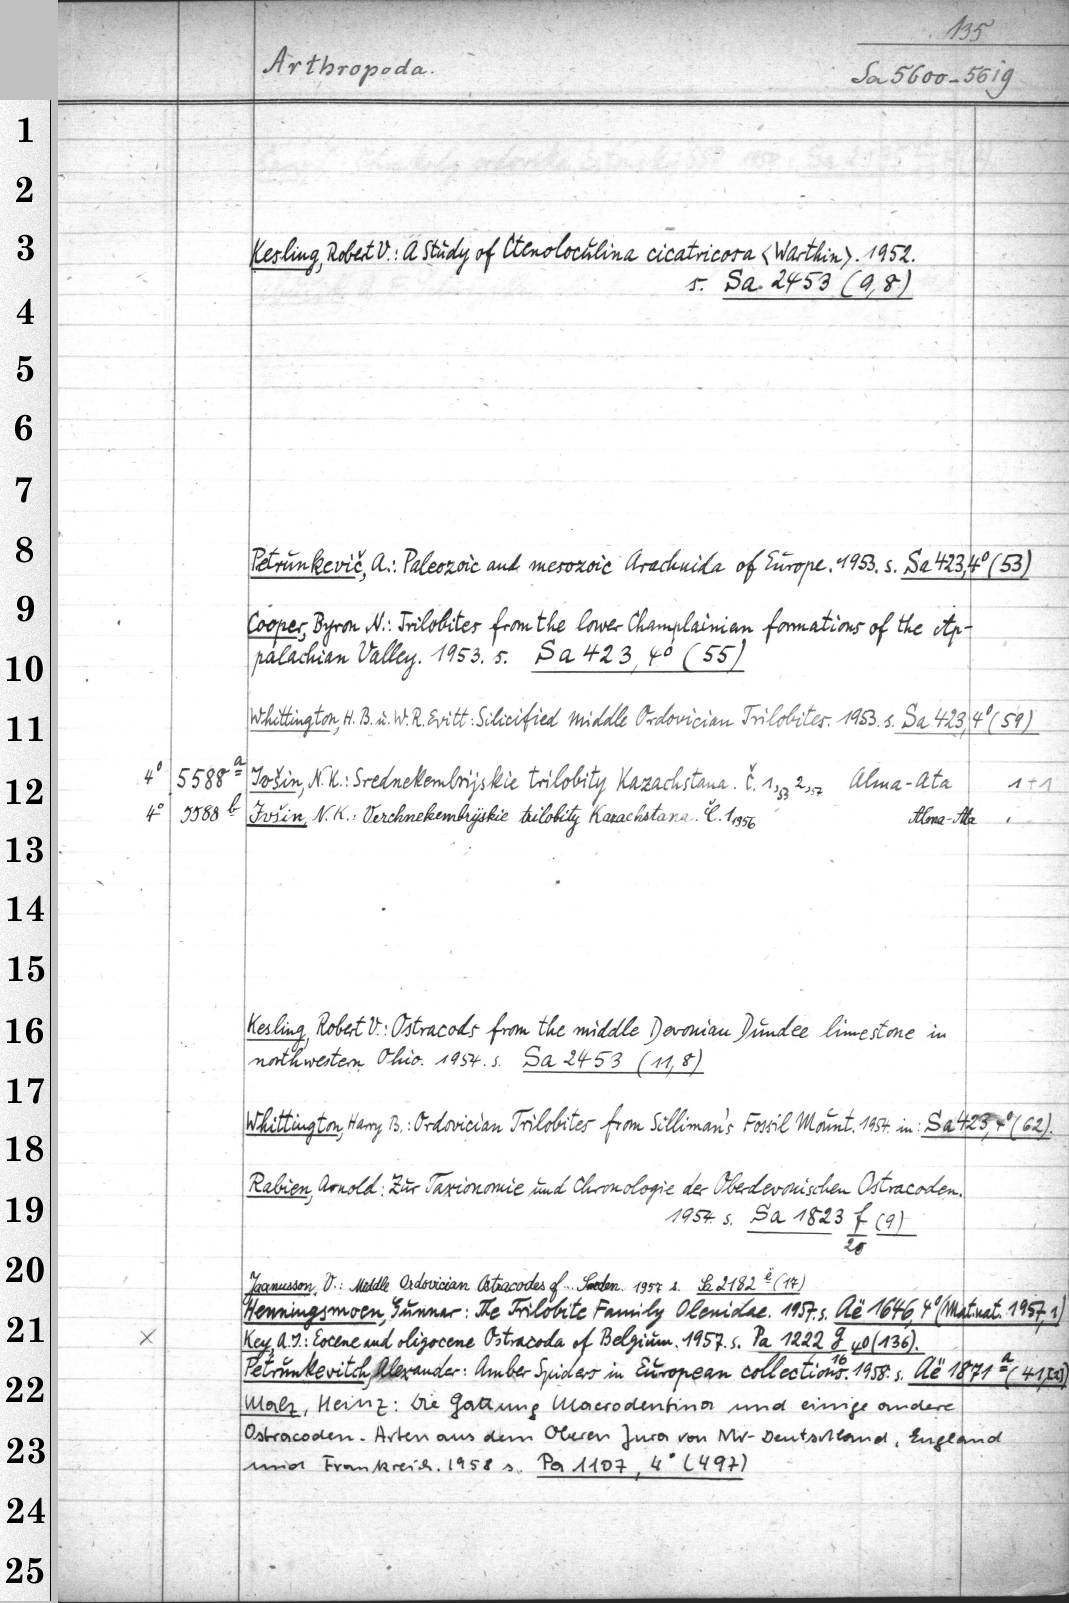 135
Arthropoda.
Sa 5600-5619
1
2
3
Kesling, Robert V.: A Study of Ctenoloculina cicatricosa <Warthin>. 1952.
s. Sa 2453 (9,8)
4
5
6
7
8
Petrunkevič, A.: Paleozoic and mesozoic Arachnida of Europe. 1953. s. Sa 423,4° (53)
9
Cooper, Byron N.: Trilobites from the lower Champlainian formations of the Ap-
10
palachian Valley. 1953. s. Sa 423, 4° (55)
11
Whittington, H. B. u. W. R. Evitt: Silicified middle Ordovician Trilobites. 1953. s. Sa 423,4° (59)
12
4° 5588 a Ivšin, N. K.: Srednekembrijskie trilobity Kazachstana. č. 1,53 2,57 Alma-Ata 1+1
4° 5588 b Ivšin, N. K.: Verchnekembrijskie trilobity Kazachstana. Č. 1 1956 Alma-Ata
13
14
15
16
Kesling, Robert V.: Ostracods from the middle Devonian Dundee limestone in
northwestern Ohio. 1954. s. Sa 2453 (11,8)
17
18
Whittington, Harry B.: Ordovician Trilobites from Silliman's Fossil Mount. 1954. in: Sa 423,4° (62).
19
Rabien, Arnold: Zur Taxionomie und Chronologie der Oberdevonischen Ostracoden.
1954. s. Sa 1823 f (9)
20
20
Jaanusson, V.: Middle Ordovician Ostracodes of ... Sweden. 1957 s. Sa 2182 e (17)
Henningsmoen, Gunnar: The Trilobite Family Olenidae. 1957. s. Aë 1646, 4° (Mat.nat. 1957,1)
21
× Key, A. J.: Eocene and oligocene Ostracoda of Belgium. 1957. s. Pa 1222 g 4° (136).
16
Petrunkevitch, Alexander: Amber Spiders in European collections. 1958. s. Aë 1871 a (41,
22
Malz, Heinz: Die Gattung Macrodentina und einige andere
Ostracoden-Arten aus dem Oberen Jura von NW-Deutschland, England
23
und Frankreich. 1958 s. Pa 1107, 4° (497)
24
25